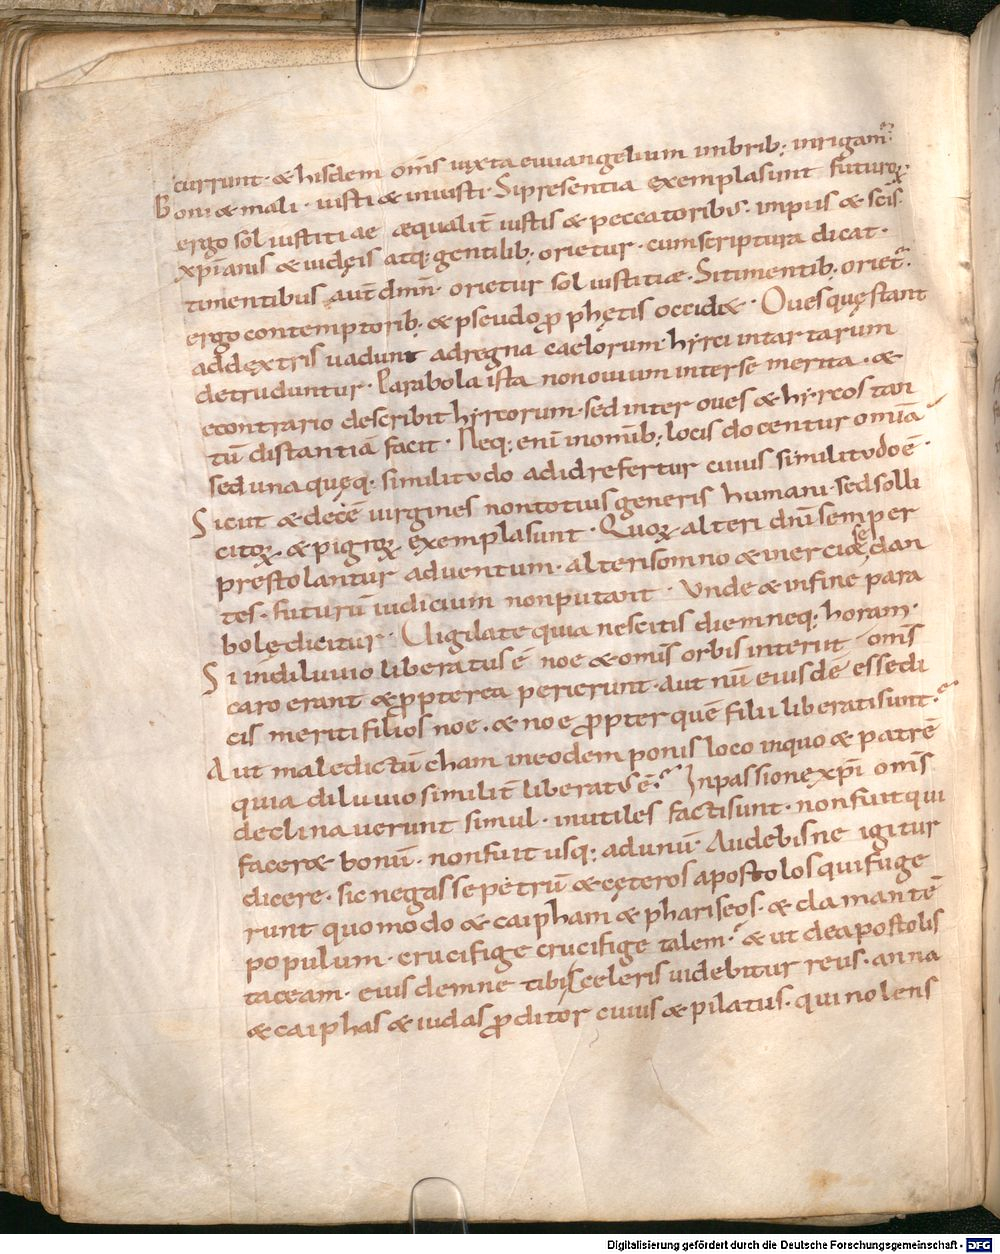 currunt· & hisdem om̄s iuxta euuangelium imbrib; inrigam̄.
Boni & mali· iusti & iniusti· Si presentia exempla sunt futuroꝝ
ergo sol iustitiae aequalit̄ iustis & peccatoribus· impiis & sc̄is·
xp̄ianis & iudęis atq; gentilib; orietur· cum scriptura dicat·
timentibus aut̄ dn̄m̄· orietur sol iustitiæ· Si timentib; oriet̄·
ergo contemptorib; & pseudo ꝓphętis occid&· Oues quę stant
ad dextris uadunt ad regna caelorum· hyrci in tartarum
detruduntur· Parabola ista non ouium inter se merita· &
econtrario describit hyrcorum· sed inter oues & hyrcos tan
tū distantiā facit· Neq; eni in omīb; locis docentur omnia
sed una quęq; similitudo ad id refertur cuius similitudo ē·
Sicut & decē uirgines non totius generis humani· sed solli
citoꝝ & pigroꝝ exempla sunt· Quoꝝ alteri dn̄i semper
prestolantur aduentum· alteri somno & inerciae se dan
tes· futurū iudicium non putant· Unde & in fine para
bolę dicitur· Uigilate quia nescitis diem neq; horam·
Si in diluuio liberatus ē noe & omīs orbis interiit om̄s
caro erant & ꝓpterea perierunt· aut nū eiusdē esse di
cis meriti filios noe· & noe ꝓpter quē filii liberati sunt·
Aut maledictū cham in eodem ponis loco in quo & patrē
quia diluuio similit̄ liberatus ē· In passione xp̄i om̄s
declinauerunt simul· inutiles facti sunt· non fuit qui
facer& bonū· non fuit usq; ad unū· Audebisne igitur
dicere· sic negasse petrū & cęteros apostolos qui fuge
runt quomodo & caipham & phariseos· & clamantē
populum· crucifige crucifige talem· & ut de apostolis
taceam· eiusdemne tibi sceleris uidebitur reus· anna
& caiphas & iudas ꝓditor cuius & pilatus· qui nolens
Digitalisierung gefördert durch die Deutsche Forschungsgemeinschaft - DFG